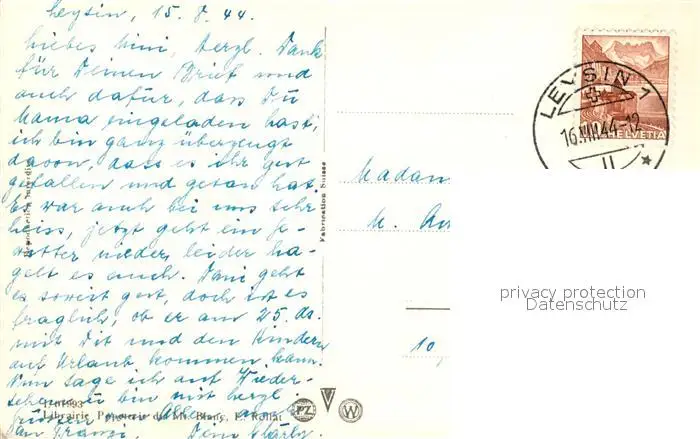 Leysin, 15.8.44.
Liebes Mini, herzl. Dank
für Deinen Brief und
auch dafür, dass Du
Mama eingeladen hast,
ich bin ganz überzeugt
davon, dass es ihr gut
gefallen und getan hat.
Es war auch bei uns sehr
heiss, jetzt geht ein Ge-
witter nieder, leider ha-
gelt es auch. Dani geht
es soweit gut, doch ist es
fraglich, ob er am 25. ds.
mit Dit und den Kindern
auf Urlaub kommen kann.
Nun sage ich auf Wieder-
sehen u. bin mit herzl.
Grüssen an Alle, auch
an
Dein
Librairie Papeterie du Mt. Blanc, E. Rollin
Fabrication Suisse
LEYSIN 1
16.VIII.44-12
HELVETIA
Madam
M.
10
privacy protection
Datenschutz
PZ
W